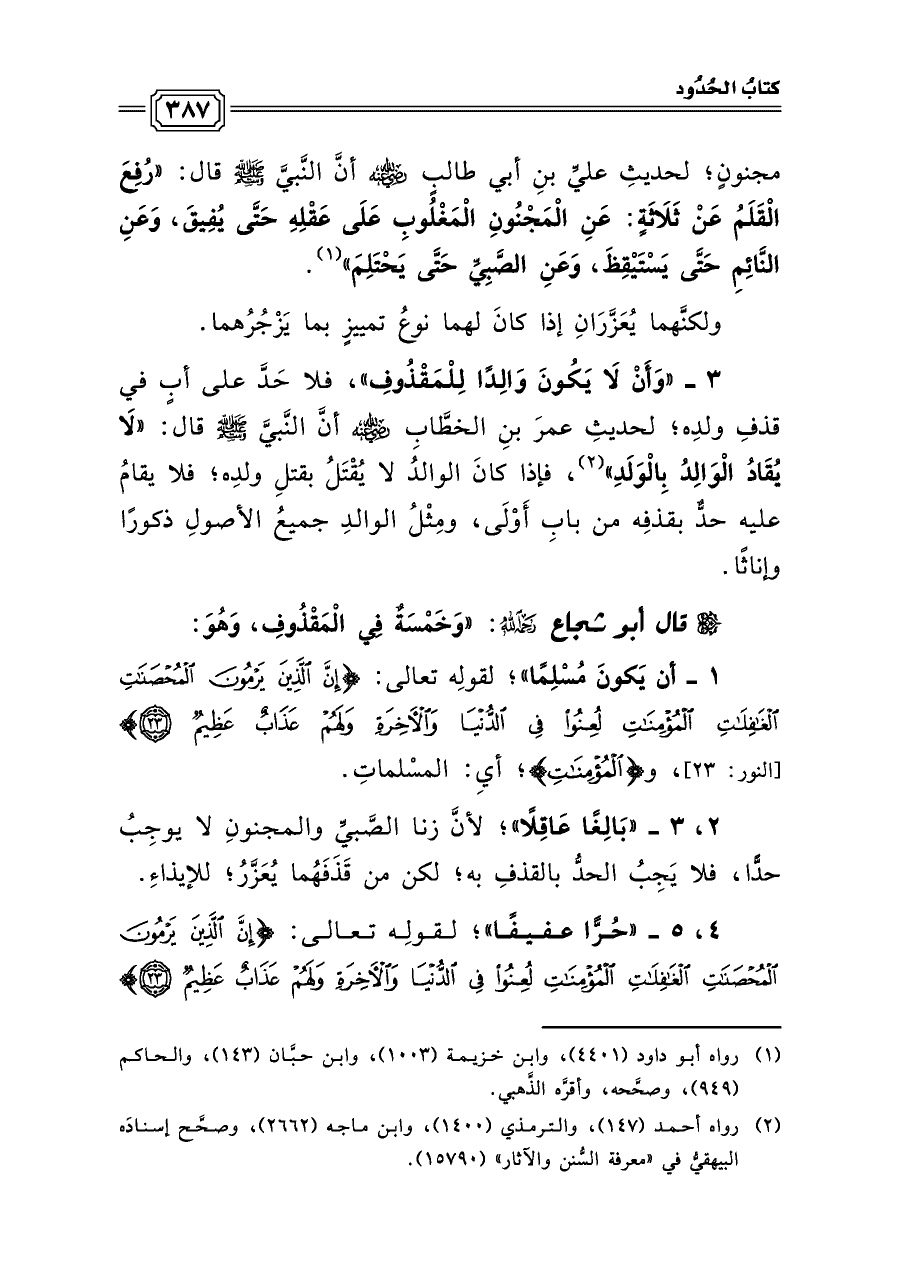 كتابُ الحُدُود
٣٨٧
مجنونٍ؛ لحديثِ عليِّ بنِ أبي طالبٍ ﵁ أنَّ النَّبيَّ ﷺ قال: «رُفِعَ
الْقَلَمُ عَنْ ثَلَاثَةٍ: عَنِ الْمَجْنُونِ الْمَغْلُوبِ عَلَى عَقْلِهِ حَتَّى يُفِيقَ، وَعَنِ
النَّائِمِ حَتَّى يَسْتَيْقِظَ، وَعَنِ الصَّبِيِّ حَتَّى يَحْتَلِمَ»(١).
ولكنَّهما يُعَزَّرَانِ إذا كانَ لهما نوعُ تمييزٍ بما يَزْجُرُهما.
٣ ـ «وَأَنْ لَا يَكُونَ وَالِدًا لِلْمَقْذُوفِ»، فلا حَدَّ على أبٍ في
قذفِ ولدِه؛ لحديثِ عمرَ بنِ الخطَّابِ ﵁ أنَّ النَّبيَّ ﷺ قال: «لَا
يُقَادُ الْوَالِدُ بِالْوَلَدِ»(٢)، فإذا كانَ الوالدُ لا يُقْتَلُ بقتلِ ولدِه؛ فلا يقامُ
عليه حدٌّ بقذفِه من بابِ أَوْلَى، ومِثْلُ الوالدِ جميعُ الأصولِ ذكورًا
وإناثًا.
قال أبو شجاع ﵀: «وَخَمْسَةٌ فِي الْمَقْذُوفِ، وَهُوَ:
١ ـ أن يَكونَ مُسْلِمًا»؛ لقولِه تعالى: ﴿إِنَّ ٱلَّذِينَ يَرْمُونَ ٱلْمُحْصَنَٰتِ
ٱلْغَٰفِلَٰتِ ٱلْمُؤْمِنَٰتِ لُعِنُوا۟ فِى ٱلدُّنْيَا وَٱلْـَٔاخِرَةِ وَلَهُمْ عَذَابٌ عَظِيمٌ ٢٣﴾
[النور: ٢٣]، و﴿ٱلْمُؤْمِنَٰتِ﴾؛ أيِ: المسْلماتِ.
٢، ٣ ـ «بَالِغًا عَاقِلًا»؛ لأنَّ زنا الصَّبيِّ والمجنونِ لا يوجِبُ
حدًّا، فلا يَجِبُ الحدُّ بالقذفِ به؛ لكن من قَذَفَهُما يُعَزَّرُ؛ للإيذاءِ.
٤، ٥ ـ «حُرًّا عفيفًا»؛ لقولِه تعالى: ﴿إِنَّ ٱلَّذِينَ يَرْمُونَ
ٱلْمُحْصَنَٰتِ ٱلْغَٰفِلَٰتِ ٱلْمُؤْمِنَٰتِ لُعِنُوا۟ فِى ٱلدُّنْيَا وَٱلْـَٔاخِرَةِ وَلَهُمْ عَذَابٌ عَظِيمٌ ٢٣﴾
(١) رواه أبو داود (٤٤٠١)، وابن خزيمة (١٠٠٣)، وابن حبَّان (١٤٣)، والحاكم
(٩٤٩)، وصحَّحه، وأقرَّه الذَّهبي.
(٢) رواه أحمد (١٤٧)، والترمذي (١٤٠٠)، وابن ماجه (٢٦٦٢)، وصحَّح إسنادَه
البيهقيُّ في «معرفة السُّنن والآثار» (١٥٧٩٠).